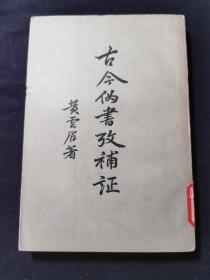 古今伪書攷補証
黄雲眉著